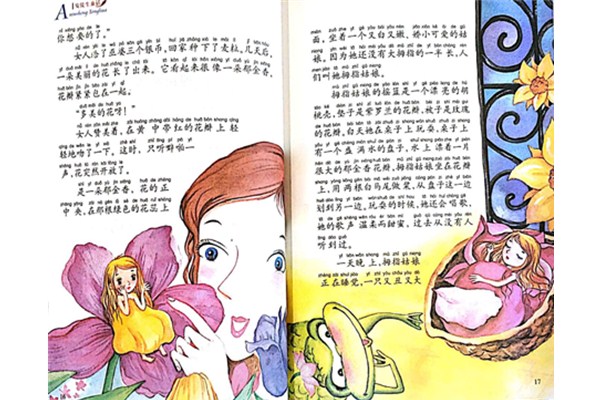 安徒生童话
你想要的了。”
女人给了巫婆三个银币，回家种下了麦粒。几天后，
一朵美丽的花长了出来，它看起来很像一朵郁金香，
花瓣紧紧包在一起。
“多美的花呀！”
女人赞美着，在黄中带红的花瓣上轻
轻地吻了一下，这时，只听鲜啪一
声，花突然开放了。
是一朵郁金香，花的正
中央，在那根绿色的花蕊上
面，坐着一个又白又嫩、娇小可爱的姑
娘，因为她还没有大拇指的一半长，人
们叫她拇指姑娘。
拇指姑娘的摇篮是一个漂亮的胡
桃壳，垫子是紫罗兰的花瓣，被子是玫瑰
的花瓣。白天她在桌子上玩耍，桌子上
有一个盛满水的盘子，水上漂着一片
很大的郁金香花瓣，拇指姑娘坐在花瓣
上，用两根白马尾做桨，从盘子这一边
划到另一边。玩耍的时候，她还会唱歌，
她的歌声温柔而甜蜜，过去从没有人
听到过。
一天晚上，拇指姑娘
正在睡觉，一只又丑又大
17